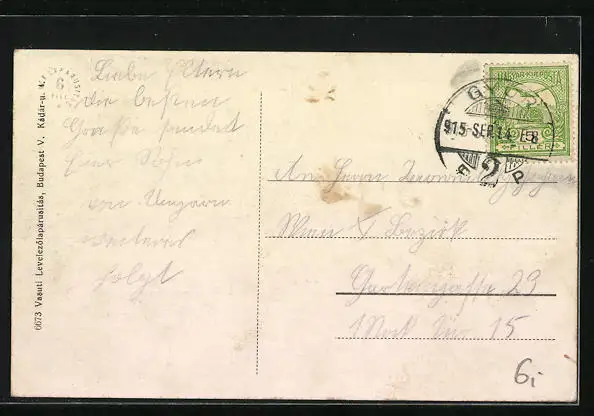 Liebe Eltern
die besten
Grüße sendet
Euer Sohn
von Ungarn
weiteres
folgt
6673 Vasuti Levelezőlapárusitás, Budapest V. Kádár-u.
MAGYAR KIR. POSTA
5
FILLER
GYŐR
915 SEP 14
An Herrn
Wien X Bezirk
Gartengasse 23
1 Stock Tür 15
6.-